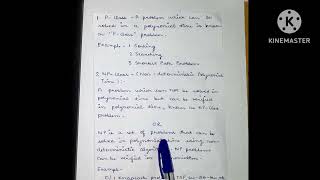 1. P-Class - A problem which can be
solved in a polynomial time is known
as "P-Class" problem.
Example - 1 Sorting
2 Searching
3 Shortest Path Problem
2. NP-Class - (Non-deterministic Polynomial
Time) :-
A problem which can not be solved in
polynomial time but can be verified
in polynomial time, known as NP-Class
problem.
OR
NP is a set of problems that can be
solve in polynomial time using non-
deterministic algorithm. NP problems
can be verified in
Example -
1) Knapsack problem
KINEMASTER